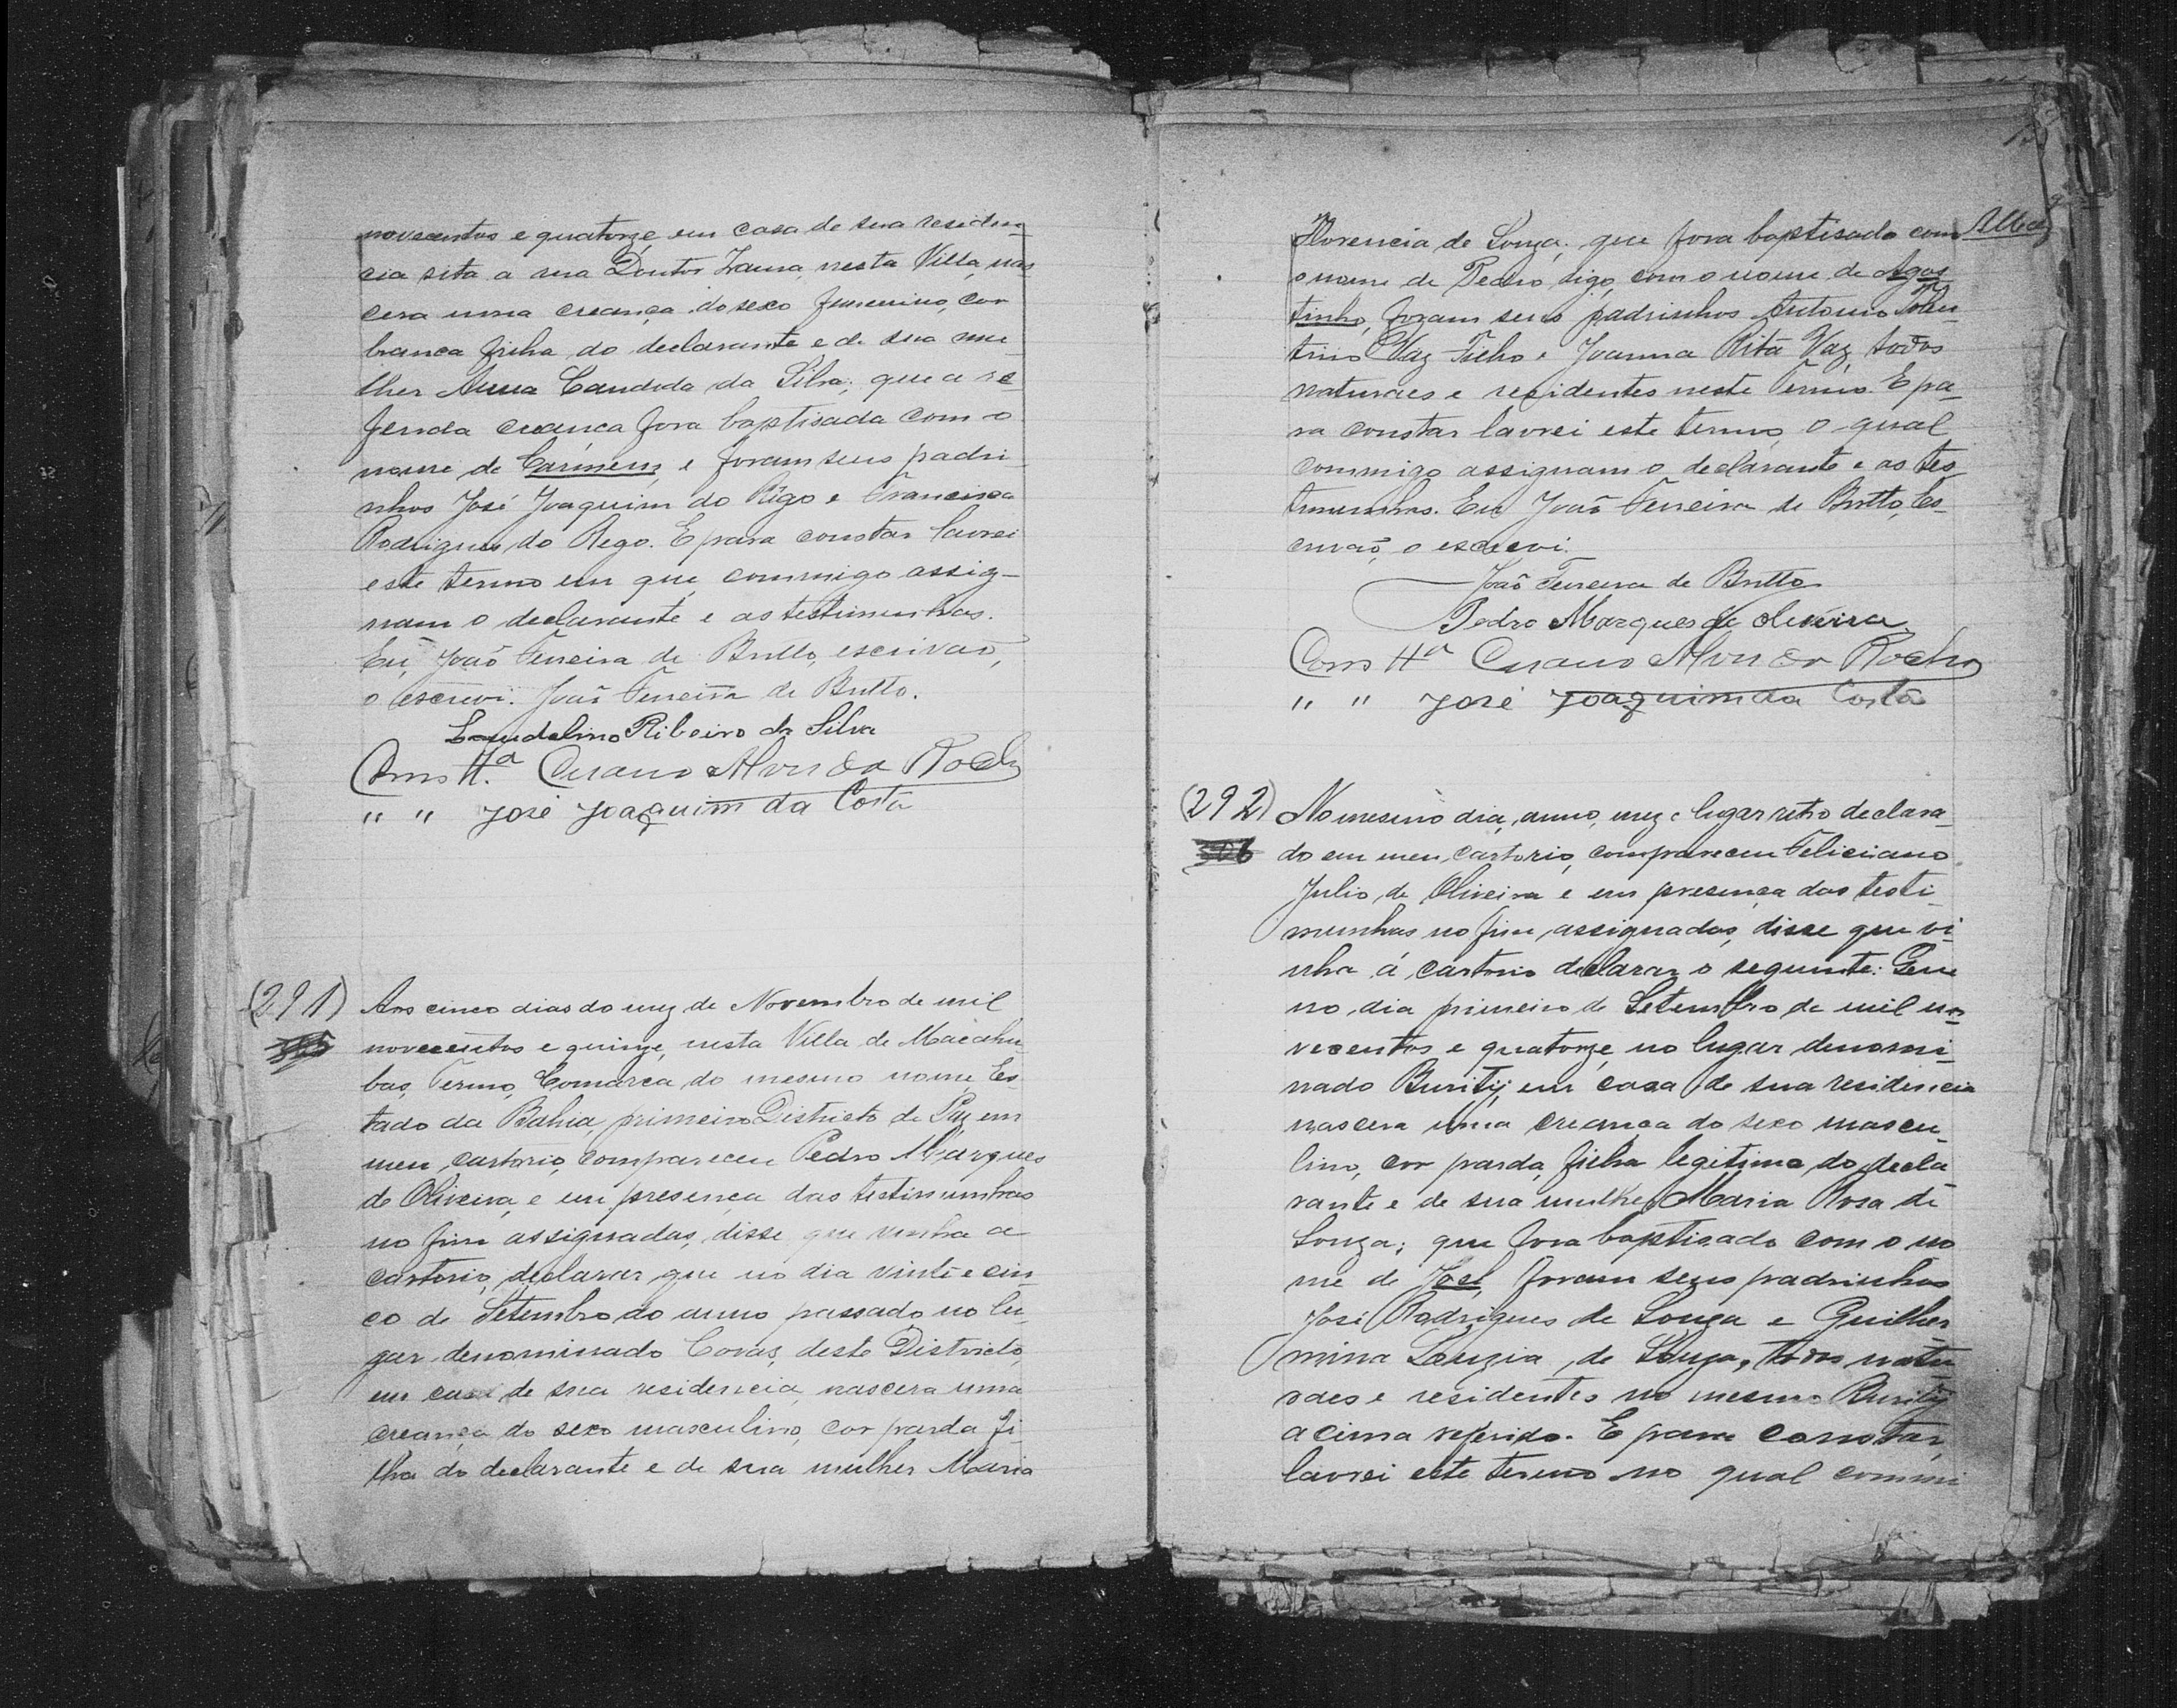 novecentos e quatorze em casa de sua residen-
cia sita a rua Doutor nesta Villa, nas-
cera uma creança do sexo femenino, cor
branca filha do declarante e de sua mu-
lher Anna Candida da Silva; que a re-
ferida creança fora baptisada com o
nome de Carmem, e foram seus padri-
nhos José Joaquim do Rego e Francisca
Rodrigues do Rego. E para constar lavrei
este termo em que commigo assig-
nam o declarante e as testimunhas.
Eu, João Ferreira de Britto, escrivão,
o escrevi. João Ferreira de Britto.
Laudelino Ribeiro da Silva
Como Tª. Alves da Rocha
" " José Joaquim da Costa
(291) Aos cinco dias do mez de Novembro de mil
novecentos e quinze, nesta Villa de Macahu-
bas, Termo, Comarca do mesmo nome, Es-
tado da Bahia, primeiro Districto de Paz em
meu cartorio, compareceu Pedro Marques
de Oliveira, e em presença das testimunhas
no fim assignadas, disse que vinha a
cartorio, declarar que no dia vinte e cin-
co de Setembro do anno passado no lu-
gar denominado Covas, deste Districto,
em casa de sua residencia, nascera uma
creança do sexo masculino, cor parda fi-
lha do declarante e de sua mulher Maria
Florencia de Souza; que fora baptisado com
o nome de Pedro digo, com o nome de Agos-
tinho, foram seus padrinhos Antonio Tolen-
tino Vaz Filho e Joanna Rita Vaz, todos
naturaes e residentes neste Termo. E pa-
ra constar lavrei este termo, o qual
commigo assignam o declarante e as tes-
timunhas. Eu João Ferreira de Britto, es-
crivão, o escrevi.
João Ferreira de Britto
Pedro Marques de Oliveira
Como Tª Alves da Rocha
" " José Joaquim da Costa
(292) No mesmo dia, anno, mez e lugar retro declara-
do em meu cartorio, compareceu Feliciano
Julio de Oliveira e em presença das testi-
munhas no fim assignadas, disse que vi-
nha á cartorio declarar o seguinte: Que
no dia primeiro de Setembro de mil no-
vecentos e quatorze, no lugar denomi-
nado Burity, em casa de sua residencia
nascera uma creança do sexo mascu-
lino, cor parda, filha legitima do decla-
rante e de sua mulher Maria Rosa de
Souza; que fora baptisado com o no-
me de Joel, foram seus padrinhos
José Rodrigues de Souza e Guilher-
mina Luzia de Souza, todos natu-
raes e residentes no mesmo Burity
acima referido. E para constar,
lavrei este termo no qual commi